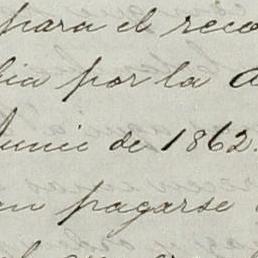 para el reco
bia por la
Junio de 1862.
an pagarse